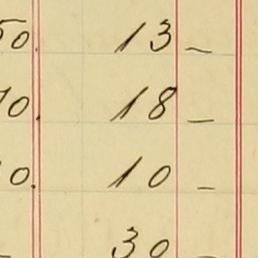 50. 13 —
70. 18 —
0. 10 —
— 30 —